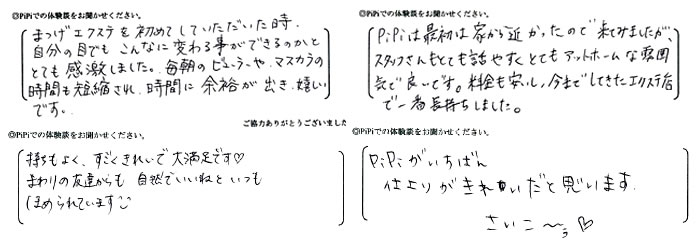 ◎PiPiでの体験談をお聞かせください。
まつげエクステを初めてしていただいた時、
自分の目でもこんなに変わる事ができるのかと
とても感激しました。毎朝のビューラーや、マスカラの
時間も短縮され、時間に余裕が出き、嬉しい
です。
ご協力ありがとうございました
◎PiPiでの体験談をお聞かせください。
PiPiは最初は家から近かったので来てみましたが、
スタッフさんもとても話やすくとてもアットホームな雰囲
気で良いです。料金も安いし、今までしてきたエクステ店
で一番長持ちしました。
◎PiPiでの体験談をお聞かせください。
持ちもよく、すごくきれいで大満足です♡
まわりの友達からも自然でいいねといつも
ほめられています
◎PiPiでの体験談をお聞かせください。
PiPiがいちばん
仕上りがきれいだと思います。
さいこ〜う♡